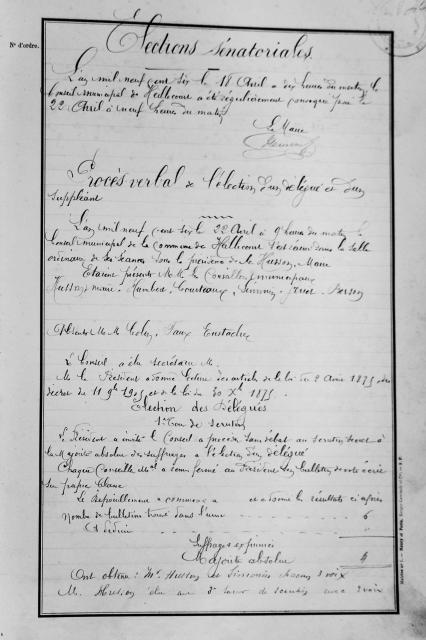 N° d'ordre.
Elections Sénatoriales
L'an mil neuf cent six le 18 Avril a dix heures du matin le
Conseil municipal de Haillecourt a été régulièrement convoqué pour le
22 Avril à neuf heures du matin
Le Maire
Procès verbal de l'élection d'un délégué et d'un
suppléant
L'an mil neuf cent six le 22 Avril à 9 heures du matin le
Conseil municipal de la commune de s'est réuni dans la salle
ordinaire de ses séances sous la présidence de Mr Husson, Maire
Etaient présents MM les Conseillers municipaux
Husson, maire
Absents MM Eustache
Le Conseil a élu secrétaire M.
M. le Président a donné lecture des articles de la loi du 2 Août 1875 du
décret de 11 9bre 1905 et de la loi du 30 Xbre 1875.
Election des Délégués
1er Tour de scrutin
Le Président a invité le Conseil a procéder sans débat au scrutin secret à
la majorité absolue des suffrages à l'élection d'un délégué
Chaque Conseiller Mal a remis fermé au Président son bulletin de vote écrit
sur papier blanc
Le dépouillement a commencé a et a donné les résultats ci après
Nombre de bulletins trouvé dans l'urne 6
A déduire "
Suffrages exprimés
Majorité absolue 4
Ont obtenu : Mrs Husson et chacun 3 voix
M. Husson élu au 3e tour de scrutin avec voix